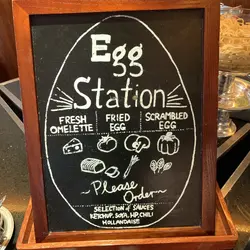 Egg
Station
FRESH OMELETTE
FRIED EGG
SCRAMBLED EGG
~Please Order~
SELECTION of SAUCES
KETCHUP, SOYA, HP, CHILI
HOLLANDAISE